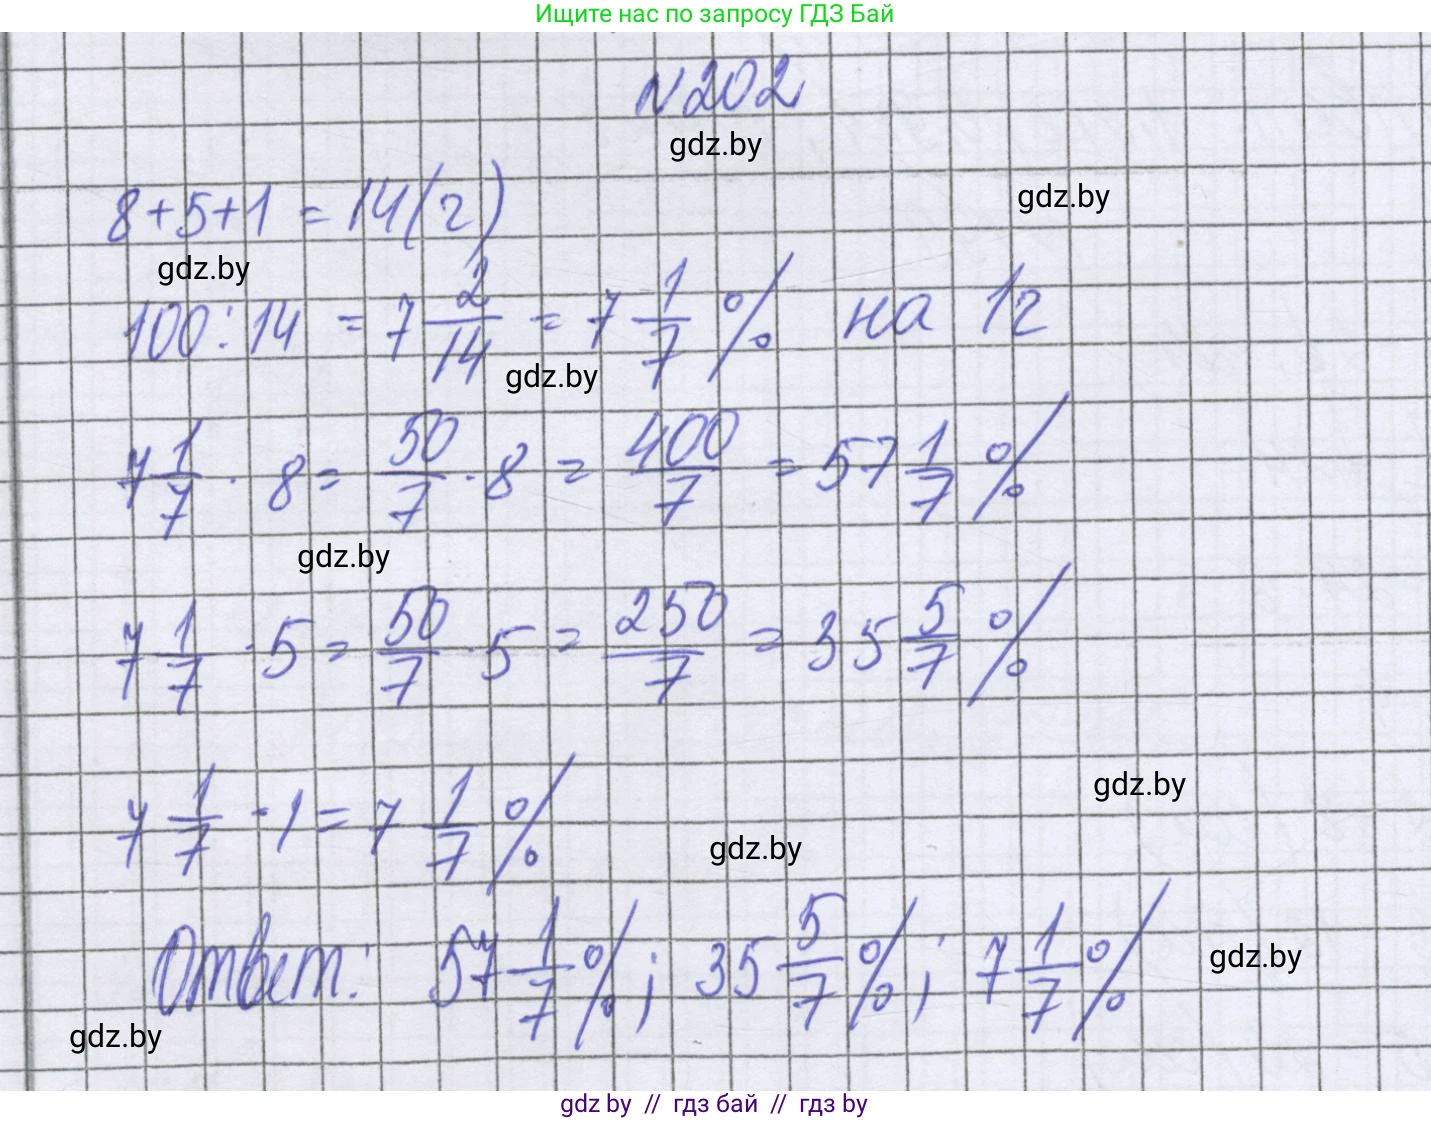 Ищите нас по запросу ГДЗ Бай
N202
gdz.by
gdz.by
8+5+1 = 14(г)
gdz.by
100:14 = 7 2/14 = 7 1/7 % на 1г
gdz.by
7 1/7 · 8 = 50/7 · 8 = 400/7 = 57 1/7 %
gdz.by
7 1/7 · 5 = 50/7 · 5 = 250/7 = 35 5/7 %
gdz.by
7 1/7 · 1 = 7 1/7 %
gdz.by
Ответ: 57 1/7 %; 35 5/7 %; 7 1/7 %
gdz.by
gdz.by
gdz by // гдз бай // гдз by